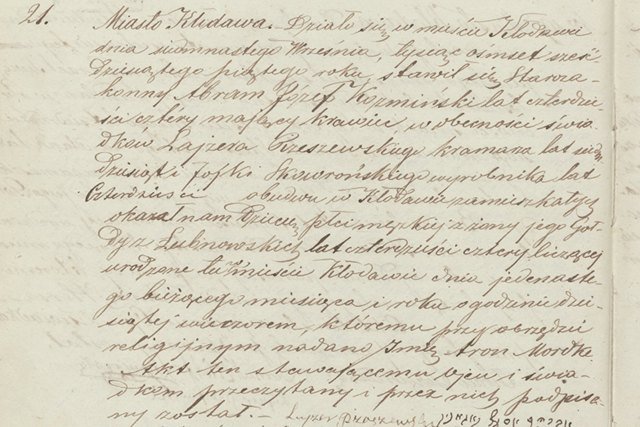 21. Miasto Kłodawa. Działo się w mieście Kłodawie
dnia siedmnastego Września, tysiąc ośmset sześć
dziesiątego piątego roku, stawił się Staroza-
konny Abram Józef Koźmiński lat czterdzie
ści cztery mający krawiec, w obecności świa-
dków Lajzera Przeszewskiego kramarza lat
dziesiąt i Jośki Skowrońskiego wyrobnika lat
czterdzieści obudwu w Kłodawie zamieszkałych
okazał nam Dziecię płci męzkiej z żony jego Goł-
dy z Lubnowskich lat czterdzieści cztery liczącej
urodzone tu w mieście Kłodawie dnia jedenaste-
go bieżącego miesiąca i roku o godzinie dzie-
siątej wieczorem, któremu przy obrzędzie
religijnym nadano Imię Aron Mordka
Akt ten stawającemu ojcu i świa-
dkom przeczytany i przez nich podpisa-
ny został. — Lajzer